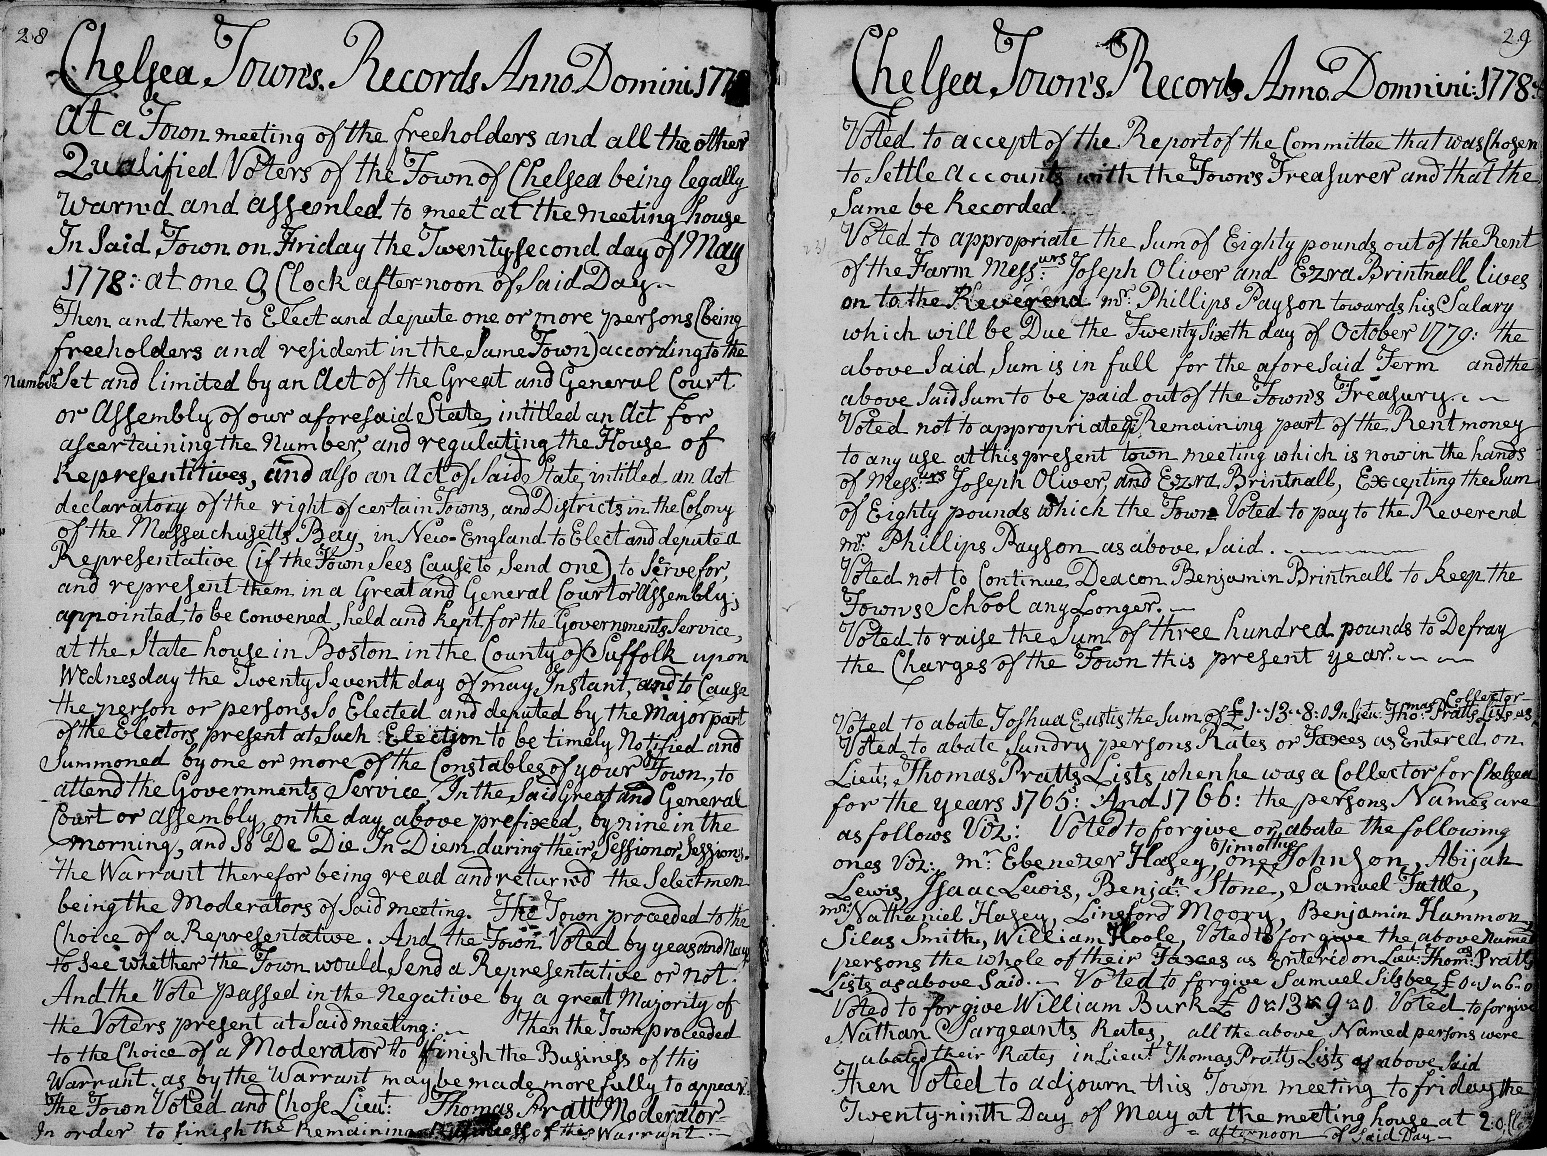 28
Chelsea Town's Records Anno Domini 177
At a Town meeting of the freeholders and all the other
Qualified Voters of the Town of Chelsea being legally
warn'd and assemled to meet at the meeting house
In Said Town on Friday the Twenty second day of May
1778: at one O Clock afternoon of Said Day
Then and there to Elect and depute one or more persons (being
freeholders and resident in the Same Town) according to the
Number Set and limited by an Act of the Great and General Court
or Assembly of our aforesaid State, intitled an Act for
ascertaining the Number, and regulating the House of
Representitives, and also an Act of Said State, intitled an Act
declaratory of the right of certain Towns, and Districts in the Colony
of the Massachusetts Bay, in New-England to Elect and depute a
Representative (if the Town Sees Cause to Send one) to Serve for,
and represent them in a Great and General Court or Assembly;
appointed, to be convened, held and kept for the Governments Service,
at the State house in Boston in the County of Suffolk upon
Wednesday the Twenty Seventh day of may Instant, and to Cause
the person or persons So Elected and deputed by the Major part
of the Electors present at Such Election to be timely Notified and
Summoned by one or more of the Constables of your Town, to
attend the Governments Service In the Said Great and General
Court or assembly, on the day above prefixed, by nine in the
morning, and So De Die In Diem during their Session or Sessions.
the Warrant therefor being read and return'd the Selectmen
being the Moderators of Said meeting. The Town proceeded to the
Choice of a Representative. And the Town Voted by yeas and Nays
to See whether the Town would Send a Representative or not.
And the Vote passed in the Negative by a great Majority of
the Voters present at Said meeting: Then the Town proceeded
to the Choice of a Moderator to finish the Business of this
Warrant. as by the Warrant may be made more fully to appear.
The Town Voted and Chose Lieut: Thomas Pratt Moderator
In order to finish the Remaining Business of this Warrant.
29
Chelsea Town's Records Anno Domnini: 1778
Voted to accept of the Report of the Committee that was Chosen
to Settle accounts with the Town's Treasurer and that the
Same be Recorded
Voted to appropriate the Sum of Eighty pounds out of the Rent
of the Farm Messurs: Joseph Oliver and Ezra Brintnall lives
on to the Reverend mr: Phillips Payson towards his Salary
which will be Due the Twenty Sixth day of October 1779: the
above Said Sum is in full for the aforesaid Term and the
above Said Sum to be paid out of the Town's Treasury.
Voted not to appropriate ye Remaining part of the Rent money
to any use at this present town meeting which is now in the hands
of Messurs Joseph Oliver, and Ezra Brintnall, Excepting the Sum
of Eighty pounds which the Town Voted to pay to the Reverend
mr: Phillips Payson as above Said.
Voted not to Continue Deacon Benjamin Brintnall to keep the
Towns School any Longer.
Voted to raise the Sum of three hundred pounds to Defray
the Charges of the Town this present year.
Voted to abate Joshua Eustis the Sum of £1-13-8-0 In Lieut: Thomas Pratts Collector Lists as
Voted to abate Sundry persons Rates or Taxes as Entered on
Lieut: Thomas Pratts Lists when he was a Collector for Chelsea
for the years 1765: And 1766: the persons Names are
as follows Viz: Voted to forgive or abate the following
ones Viz: mr Ebenezer Hasey, one Timothy Johnson, Abijah
Lewis, Isaac Lewis, Benjan: Stone, Samuel Tuttle,
mr: Nathaniel Hasey, Linsford Moory, Benjamin Hammon,
Silas Smith, William Hoole, Voted to forgive the above named
persons the whole of their Taxes as Entered on Lieut: Thomas Pratts
Lists as above Said. Voted to forgive Samuel Silsbee £0-1-6-0
Voted to forgive William Burk £ 0-13-9-0 Voted to forgive
Nathan Sargeants Rates, all the above Named persons were
abated their Rates in Lieut Thomas Pratts Lists as above Said
Then Voted to adjourn this Town meeting to friday the
Twenty-ninth Day of May at the meeting house at 2 o,Clock
afternoon of Said Day